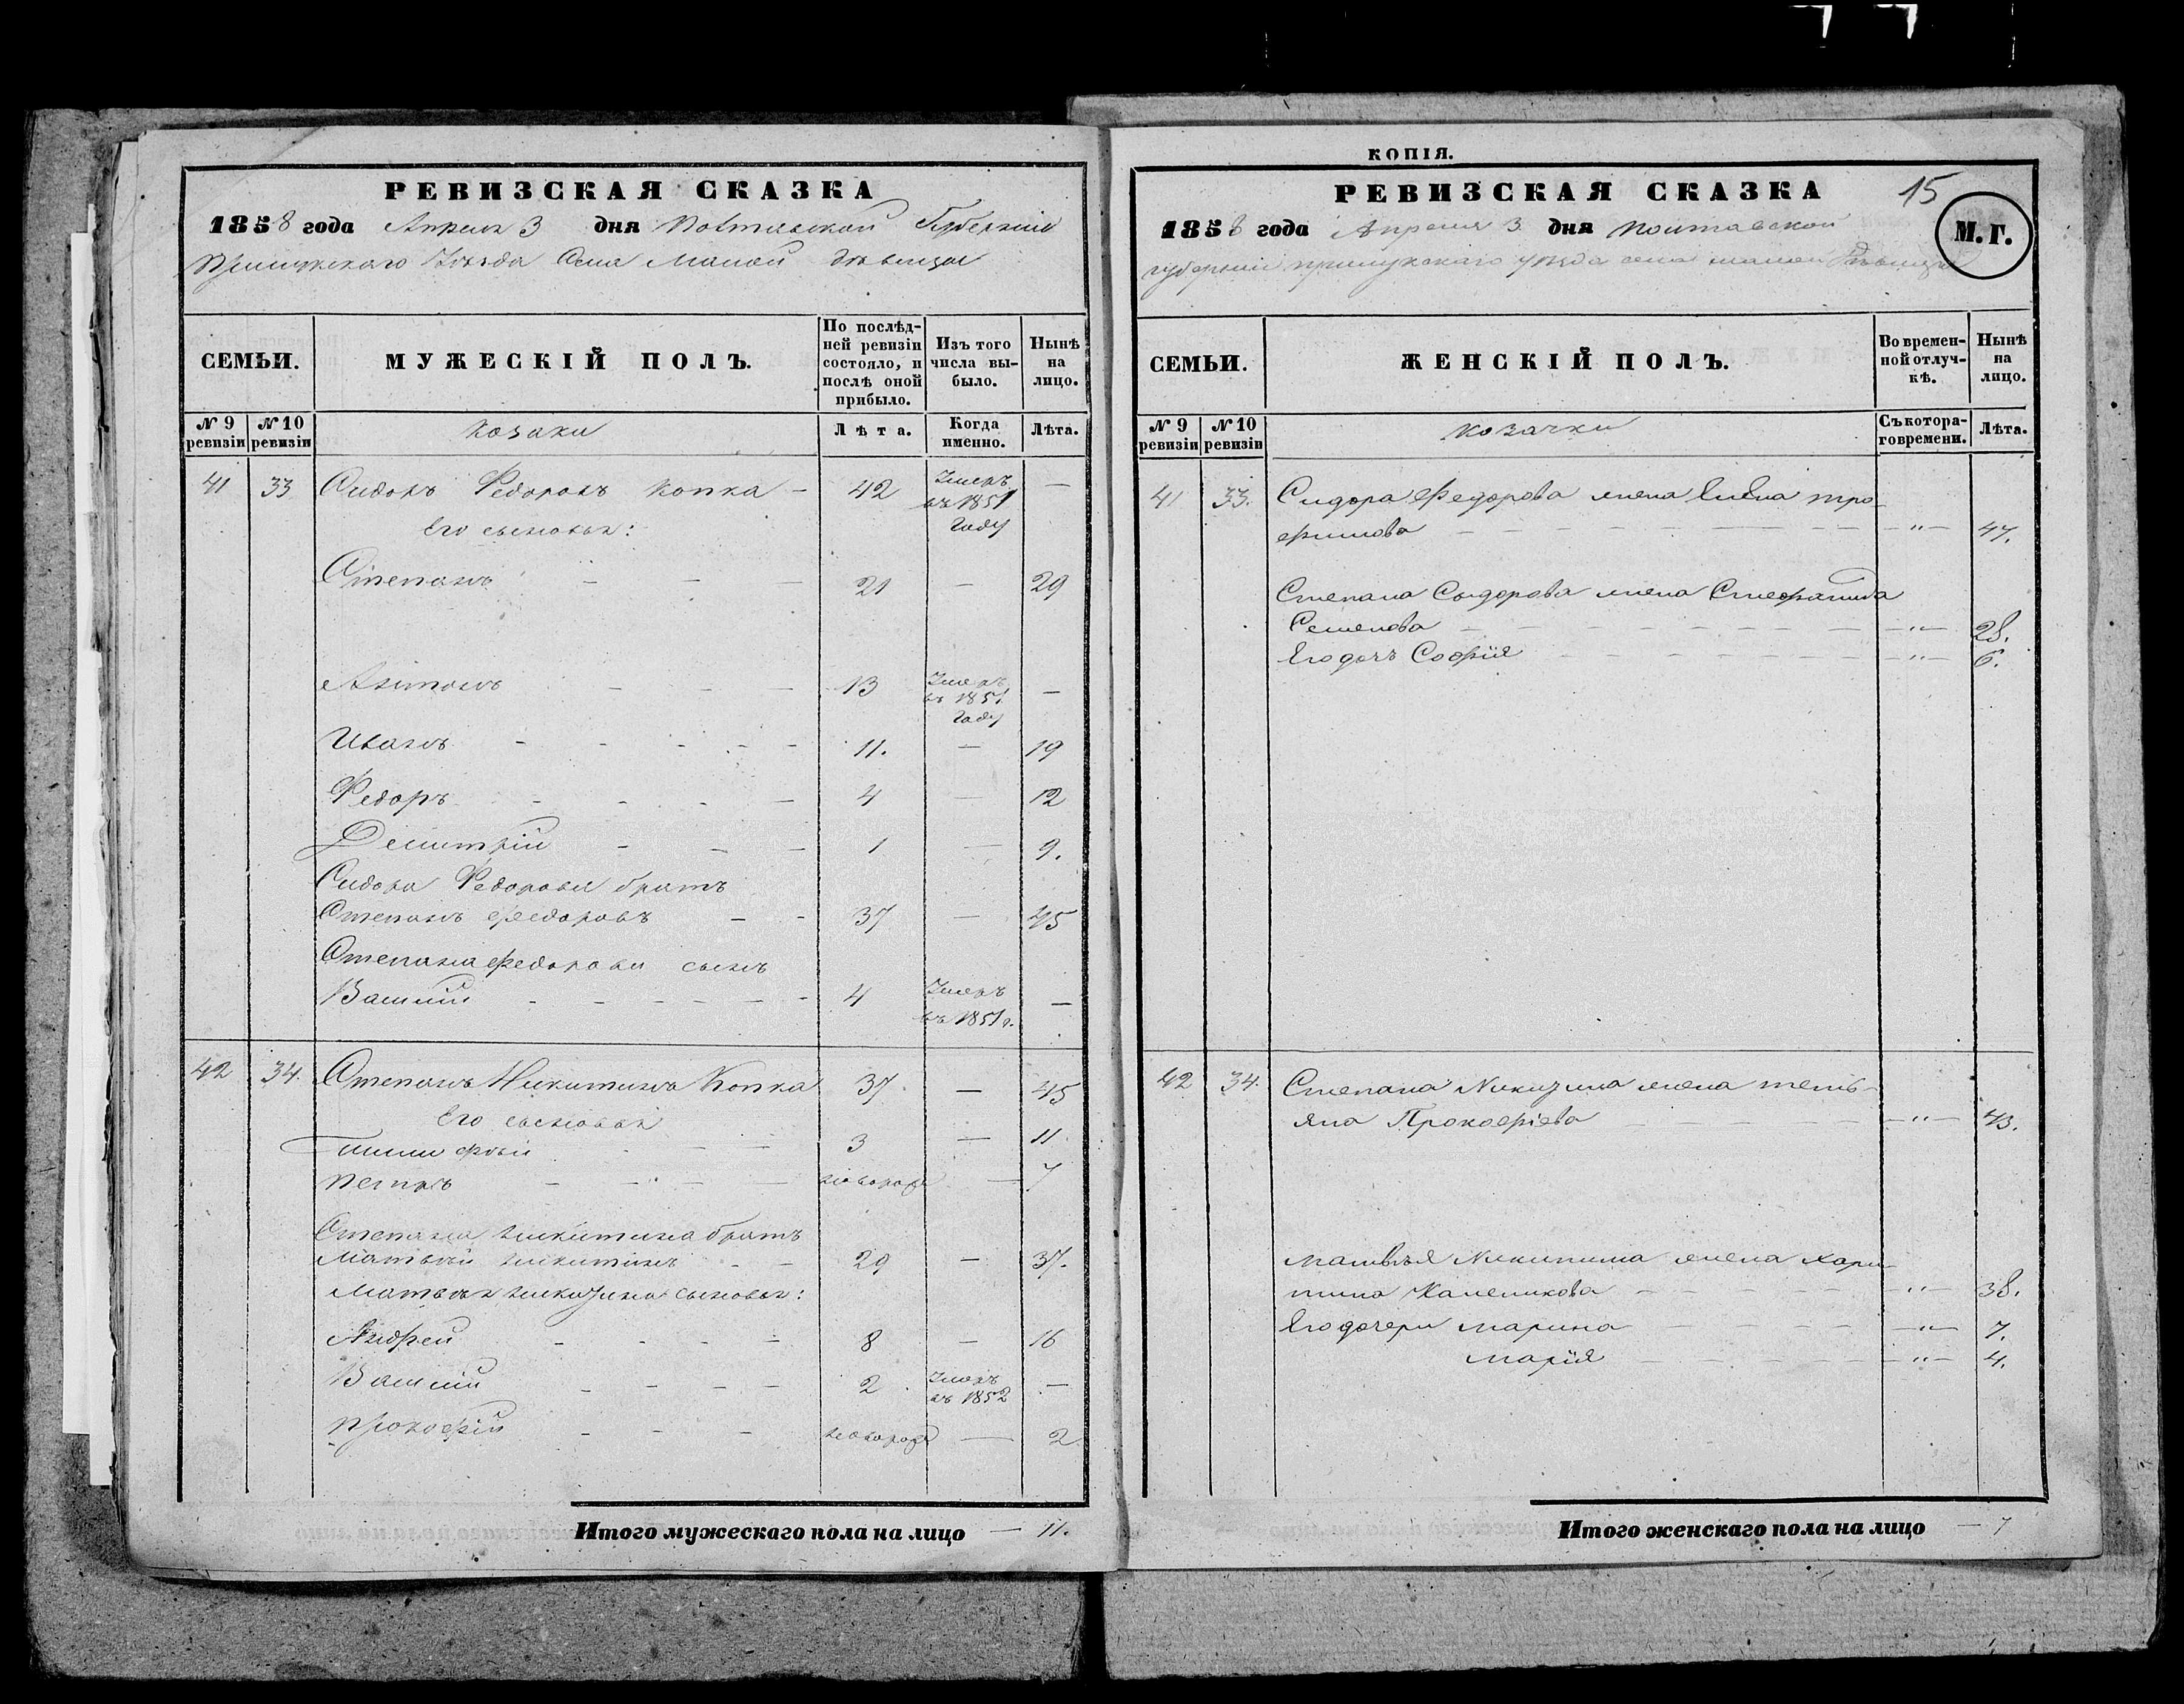 РЕВИЗСКАЯ СКАЗКА
1858 года Апреля 3 дня Полтавской Губернии
Прилукского Уезда Села Малой Девицы
СЕМЬИ.
МУЖЕСКІЙ ПОЛЪ.
По послѣд-
ней ревизіи
состояло, и
послѣ оной
прибыло.
Изъ того
числа вы-
было.
Нынѣ
на
лицо.
№ 9
ревизіи
№ 10
ревизіи
Козаки
Лѣта.
Когда
именно.
Лѣта.
41 33 Сидоръ Федоровъ Копка – 42 Умеръ въ 1851 Году —
Его сыновья:
Степанъ — — — 21 — 29
Антонъ - — — 13 Умеръ въ 1851 Году —
Иванъ - - - - - 11. — 19
Федоръ - - - — 4 — 12
Демитрій - — — 1 — 9.
Сидора Федорова братъ
Степанъ Федоровъ — - 37 — 45
Степана Федорова сынъ
Василій - - — — - - 4 Умеръ въ 1851 г. —
42 34. Степанъ Никитинъ Копка 37. — 45
Его сыновья
Тимофей - — — 3 — 11
Петръ — - - — — новорож — 7
Степана Никитина братъ
Матвей Никитинъ - - 29 — 37.
Матвея Никитина сыновья:
Андрей - - - - 8 — 16
Василій - - - - 2 Умеръ въ 1852 —
Прокофій - - - новорож — 2
Итого мужескаго пола на лицо — 11.
КОПІЯ.
РЕВИЗСКАЯ СКАЗКА
15
М.Г.
1858 года Апреля 3 дня Полтавской
губерніи прилукскаго уѣзда села малой Дѣвицы
СЕМЬИ.
ЖЕНСКІЙ ПОЛЪ.
Во времен-
ной отлуч-
кѣ.
Нынѣ
на
лицо.
№ 9
ревизіи
№ 10
ревизіи
Козачки
Съ котора-
го времени.
Лѣта.
41 33. Сидора Федорова жена Елена тро-
фимова — — — — — — " — 47.
Степана Сыдорова жена Стефанида
Семенова — — — — — — " — 28.
Его дочъ Софія — — — — — " — 6.
42 34. Степана Никитина жена тать-
яна Прокофіева — — — — — " — 43.
матвѣя Никитина жена хари-
тина — — — — — " — 38.
Его дочери марина — — — — " — 7.
марія — — — — " — 4.
Итого женскаго пола на лицо — 7